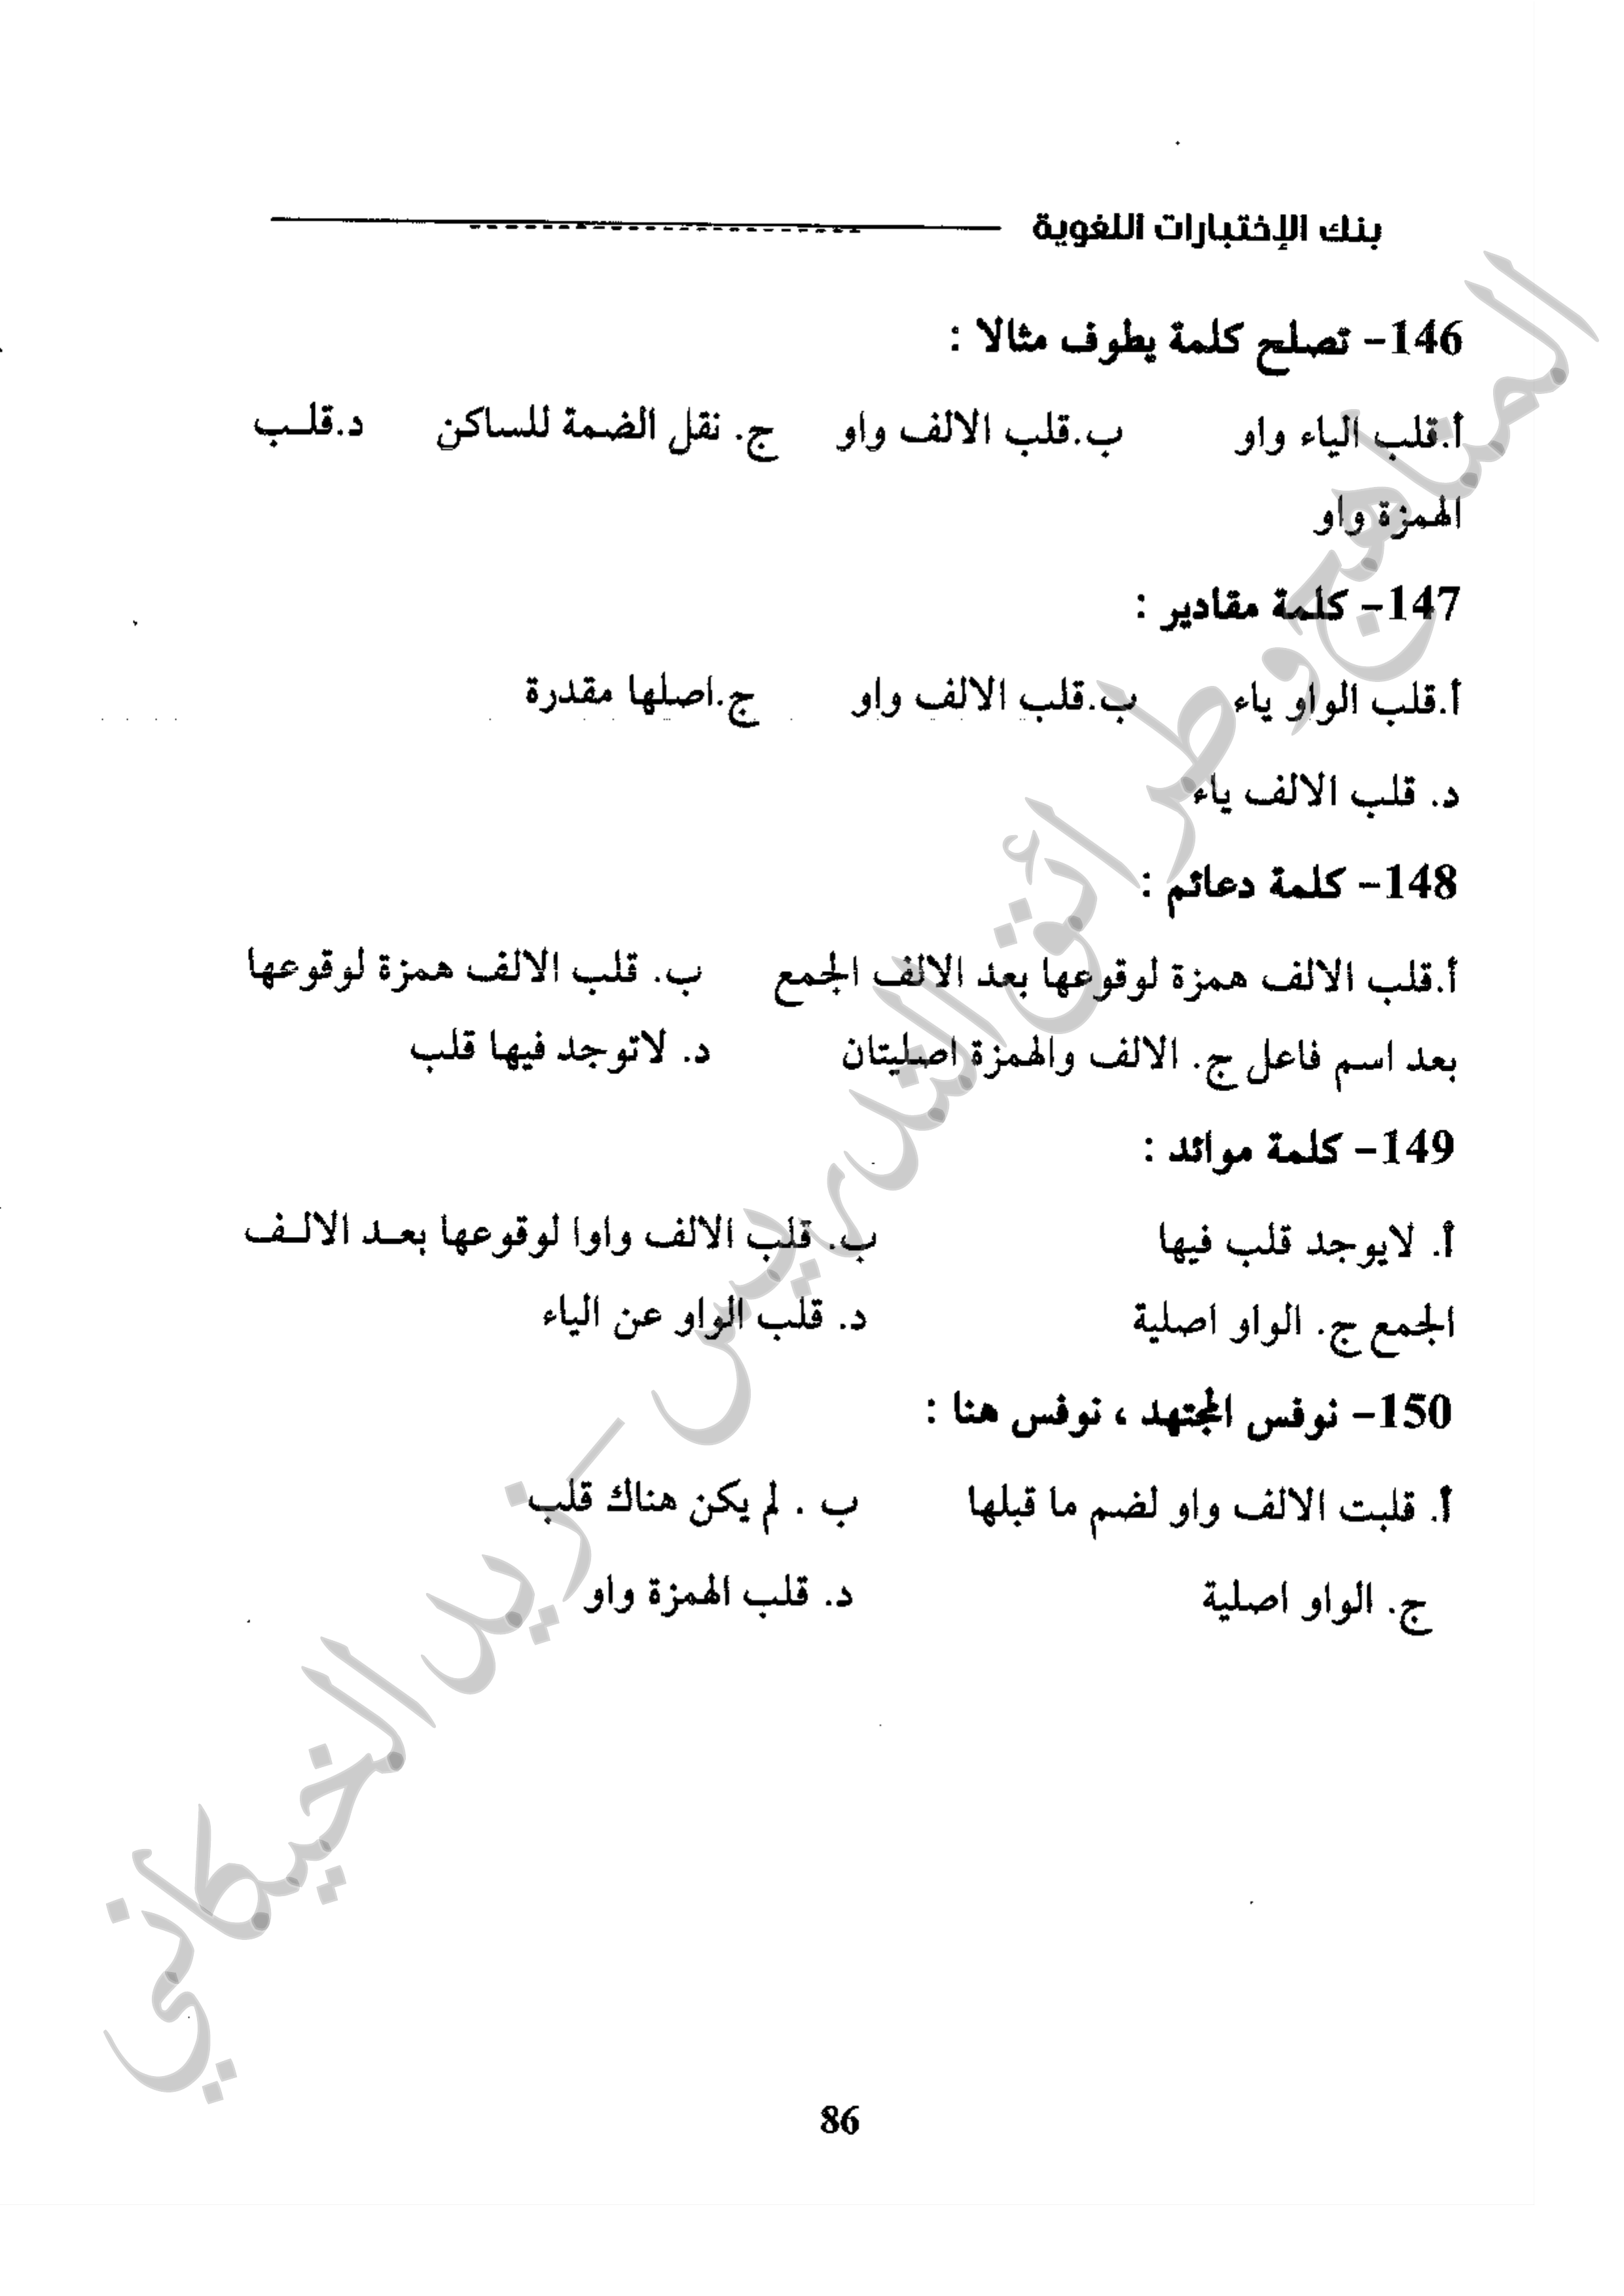 بنك الإختبارات اللغوية
146- تصلح كلمة يطوف مثالا :
أ.قلب الياء واو ب.قلب الالف واو ج. نقل الضمة للساكن د.قلب
الهمزة واو
147- كلمة مقادير :
أ.قلب الواو ياء ب.قلب الالف واو ج.اصلها مقدرة
د. قلب الالف ياء
148- كلمة دعائم :
أ.قلب الالف همزة لوقوعها بعد الالف الجمع ب. قلب الالف همزة لوقوعها
بعد اسم فاعل ج. الالف والهمزة اصليتان د. لاتوجد فيها قلب
149- كلمة موائد :
أ. لايوجد قلب فيها ب. قلب الالف واوا لوقوعها بعد الالف
الجمع ج. الواو اصلية د. قلب الواو عن الياء
150- نوفس المجتهد ، نوفس هنا :
أ. قلبت الالف واو لضم ما قبلها ب . لم يكن هناك قلب
ج. الواو اصلية د. قلب الهمزة واو
المناهج وطرائق التدريس - زيد الخيكاني
86